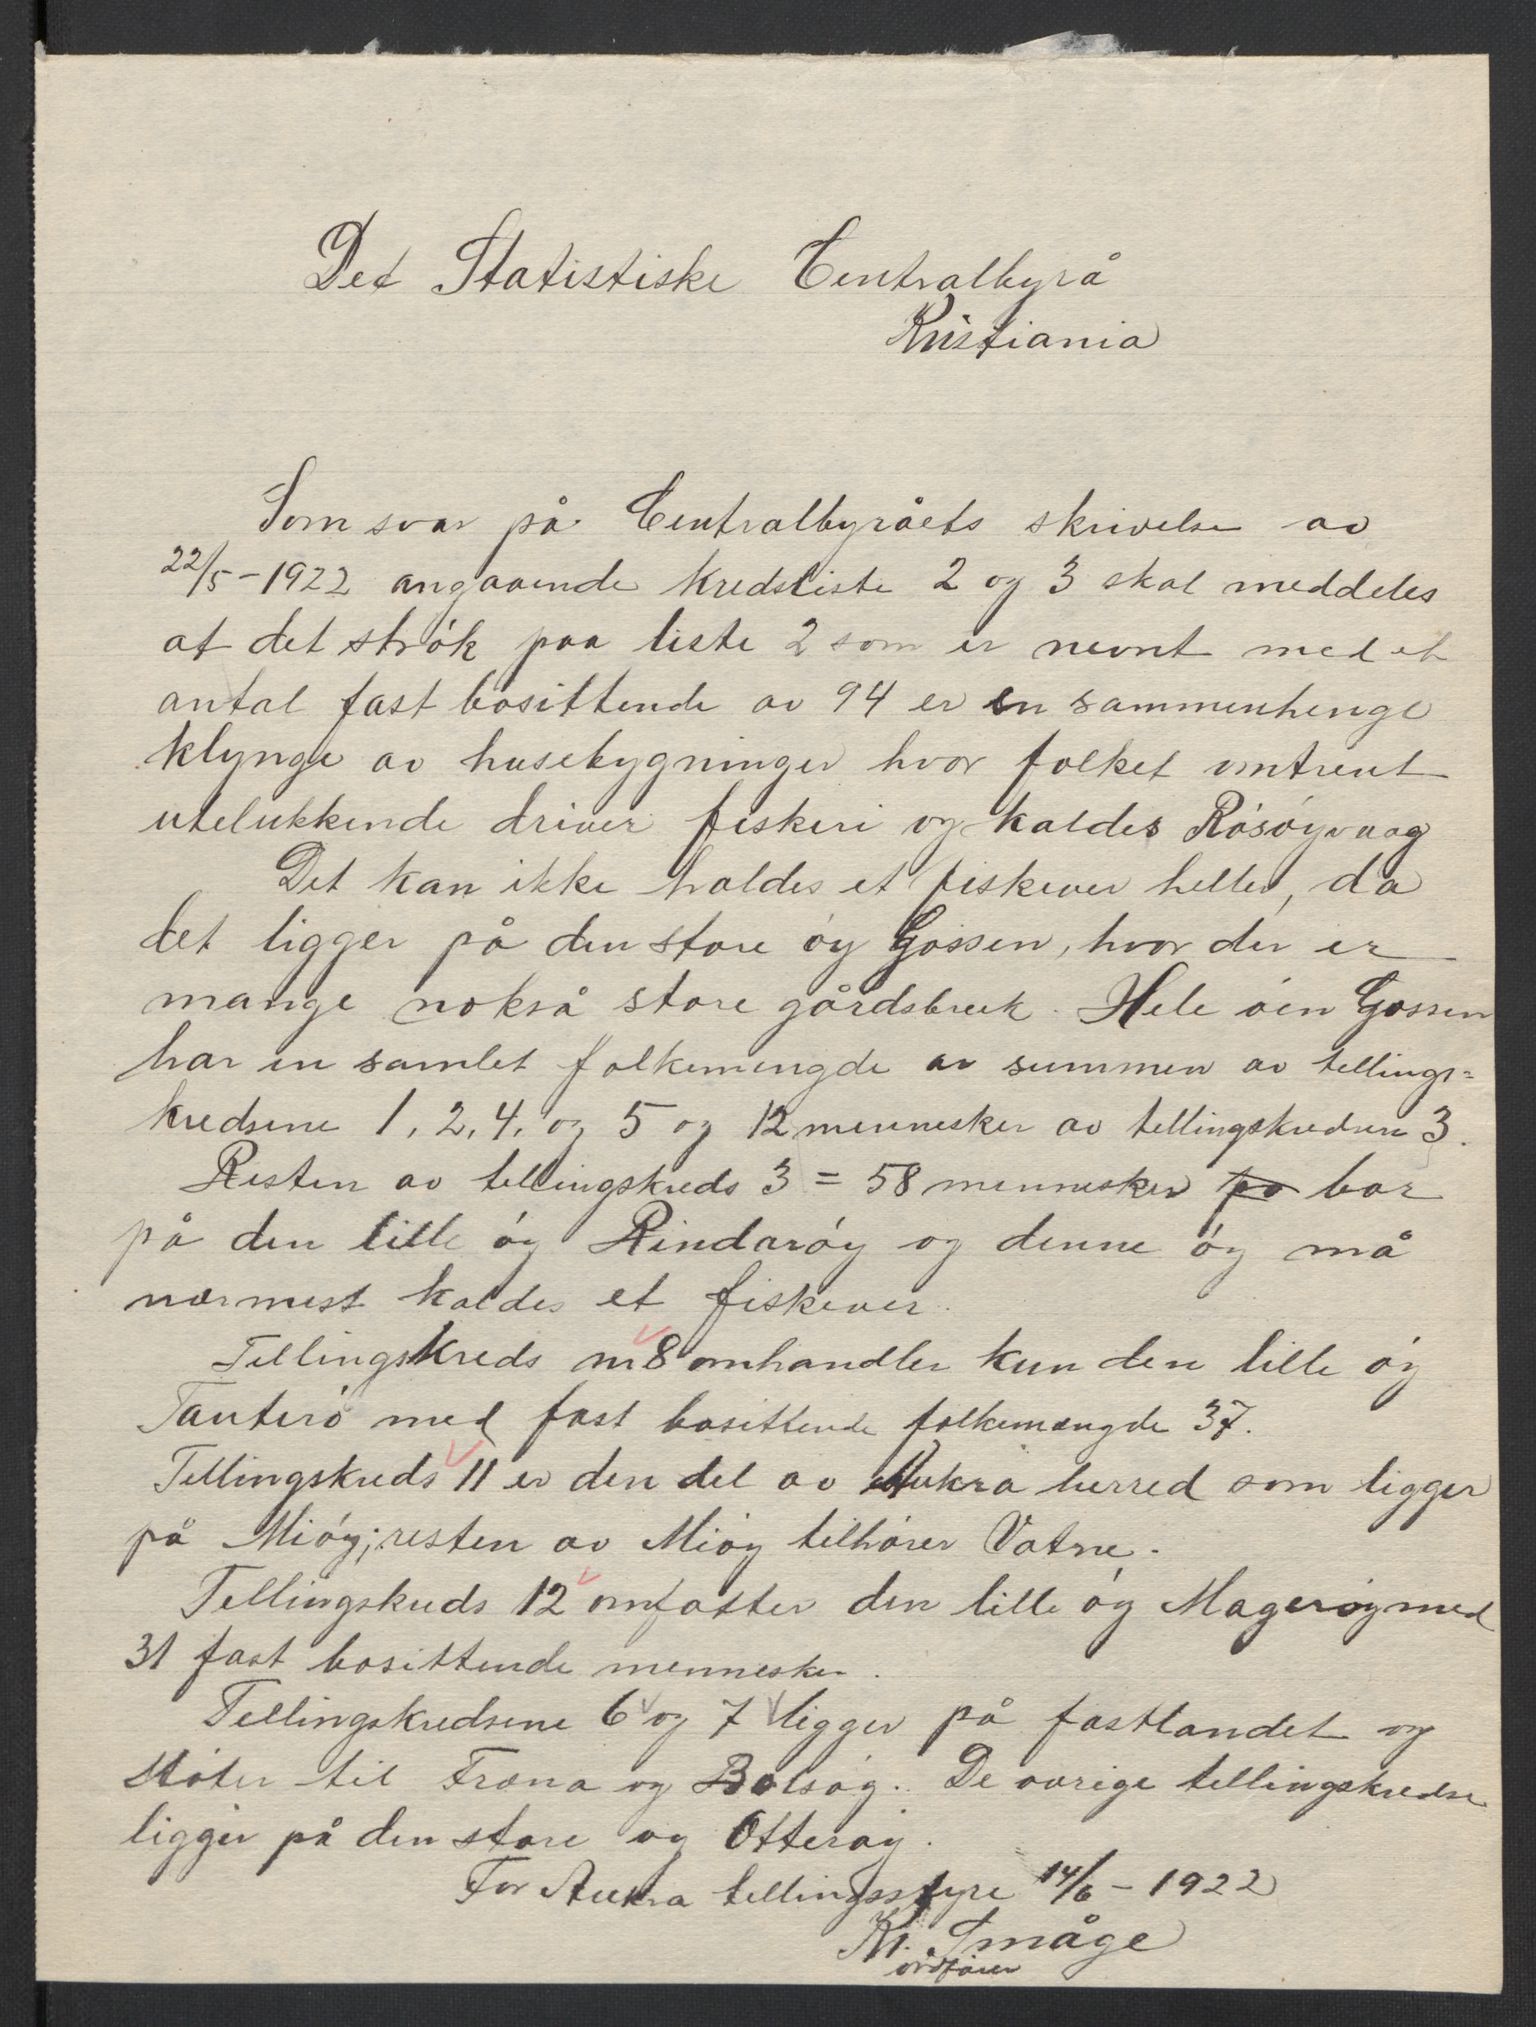 Det Statistiske Centralbyrå
Kristiania
Som svar på Centralbyråets skrivelse av
22/5-1922 angaaende kredsliste 2 og 3 skal meddeles
at det strók paa liste 2 som er nevnt med et
antal fast bosittende av 94 er en sammenhenge
klynge av husebygninger hvor folket omtrent
utelukkende driver fiskeri og kaldes Rósóyvaag
Det kan ikke holdes et fiskever heller, da
det ligger på den store óy Gossen, hvor der er
mange nokså store gårdsbruk. Hele óen Gossen
har en samlet folkemengde av summen av tellings=
kredsene 1, 2, 4, og 5 og 12 mennesker av tellingskredsen 3.
Resten av tellingskreds 3 = 58 mennesker po bor
på den lille óy Rindaróy og denne óy må
nærmest kaldes et fiskever.
Tellingskreds nr 8 omhandler kun den lille óy
Tauteró med fast bosittende folkemængde 37.
Tellingskreds 11 er den del av Aukra herred som ligger
på Mióy; resten av Mióy tilhórer Vatne.
Tellingskreds 12 omfatter den lille óy Mageróy med
31 fast bosittende mennesker.
Tellingskredsene 6 og 7 ligger på fastlandet og
stóter til Fræna og Bolsóy. De óvrige tellingskredse
ligger på den store óy Otteróy.
For Aukra tellingsstyre 14/6-1922
Kr. Småge
ordfórer